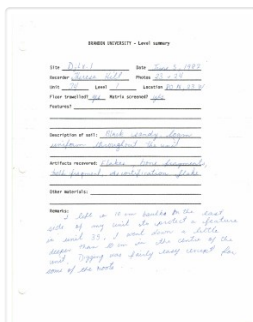 BRANDON UNIVERSITY - Level summary
Site DiLv-1 Date June 3, 1987
Recorder Teresa Hill Photos 23-24
Unit 74 Level 1 Location
Floor trowelled? yes Matrix screened? yes
Features?
Description of soil: Black sandy loam
uniform throughout the unit
Artifacts recovered: Flakes, bone fragments,
flake
Other materials:
Remarks:
I left a 10 cm for the east
side of my unit to protect a feature
in unit 73. I went down a little
deeper than 10 cm in the centre of the
unit. Digging was fairly easy except for
some of the roots.